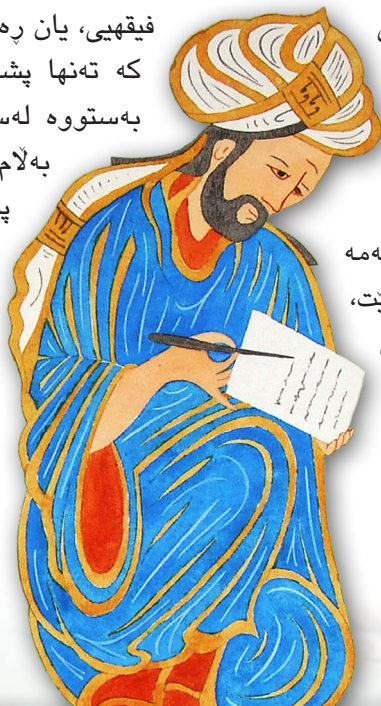 فیقهیی، یان ڕە
کە تەنها پشـ
بەستووە لەسـ
بەڵام
پـ
ـەمە
ێت،